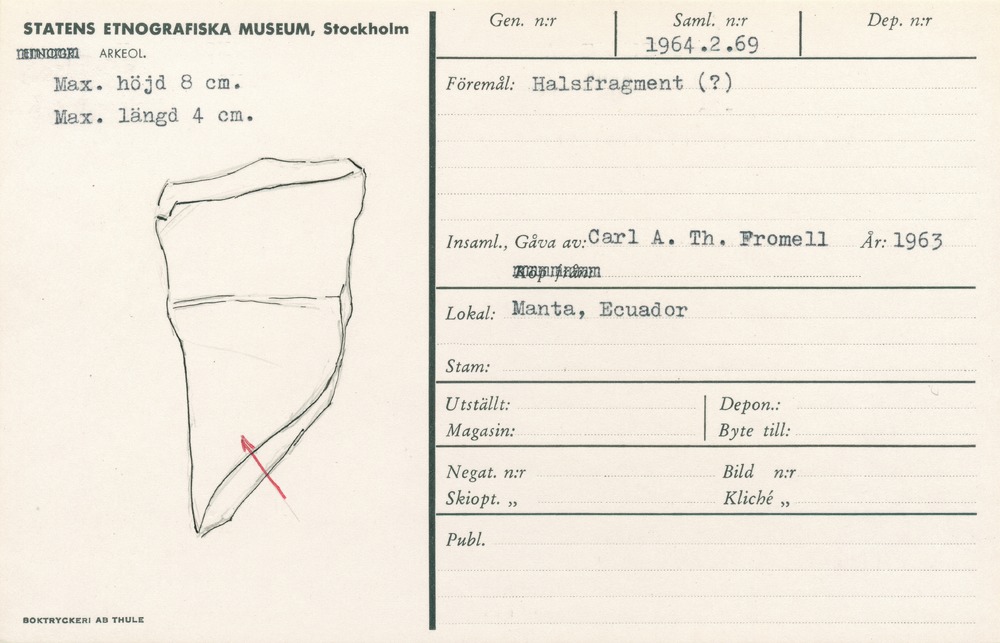 STATENS ETNOGRAFISKA MUSEUM, Stockholm
ARKEOL.
Max. höjd 8 cm.
Max. längd 4 cm.
BOKTRYCKERI AB THULE
Gen. n:r
Saml. n:r
Dep. n:r
1964.2.69
Föremål: Halsfragment (?)
Insaml., Gåva av: Carl A. Th. Fromell År: 1963
Köp från:
Lokal: Manta, Ecuador
Stam:
Utställt: Depon.:
Magasin: Byte till:
Negat. n:r Bild n:r
Skiopt. „ Kliché „
Publ.